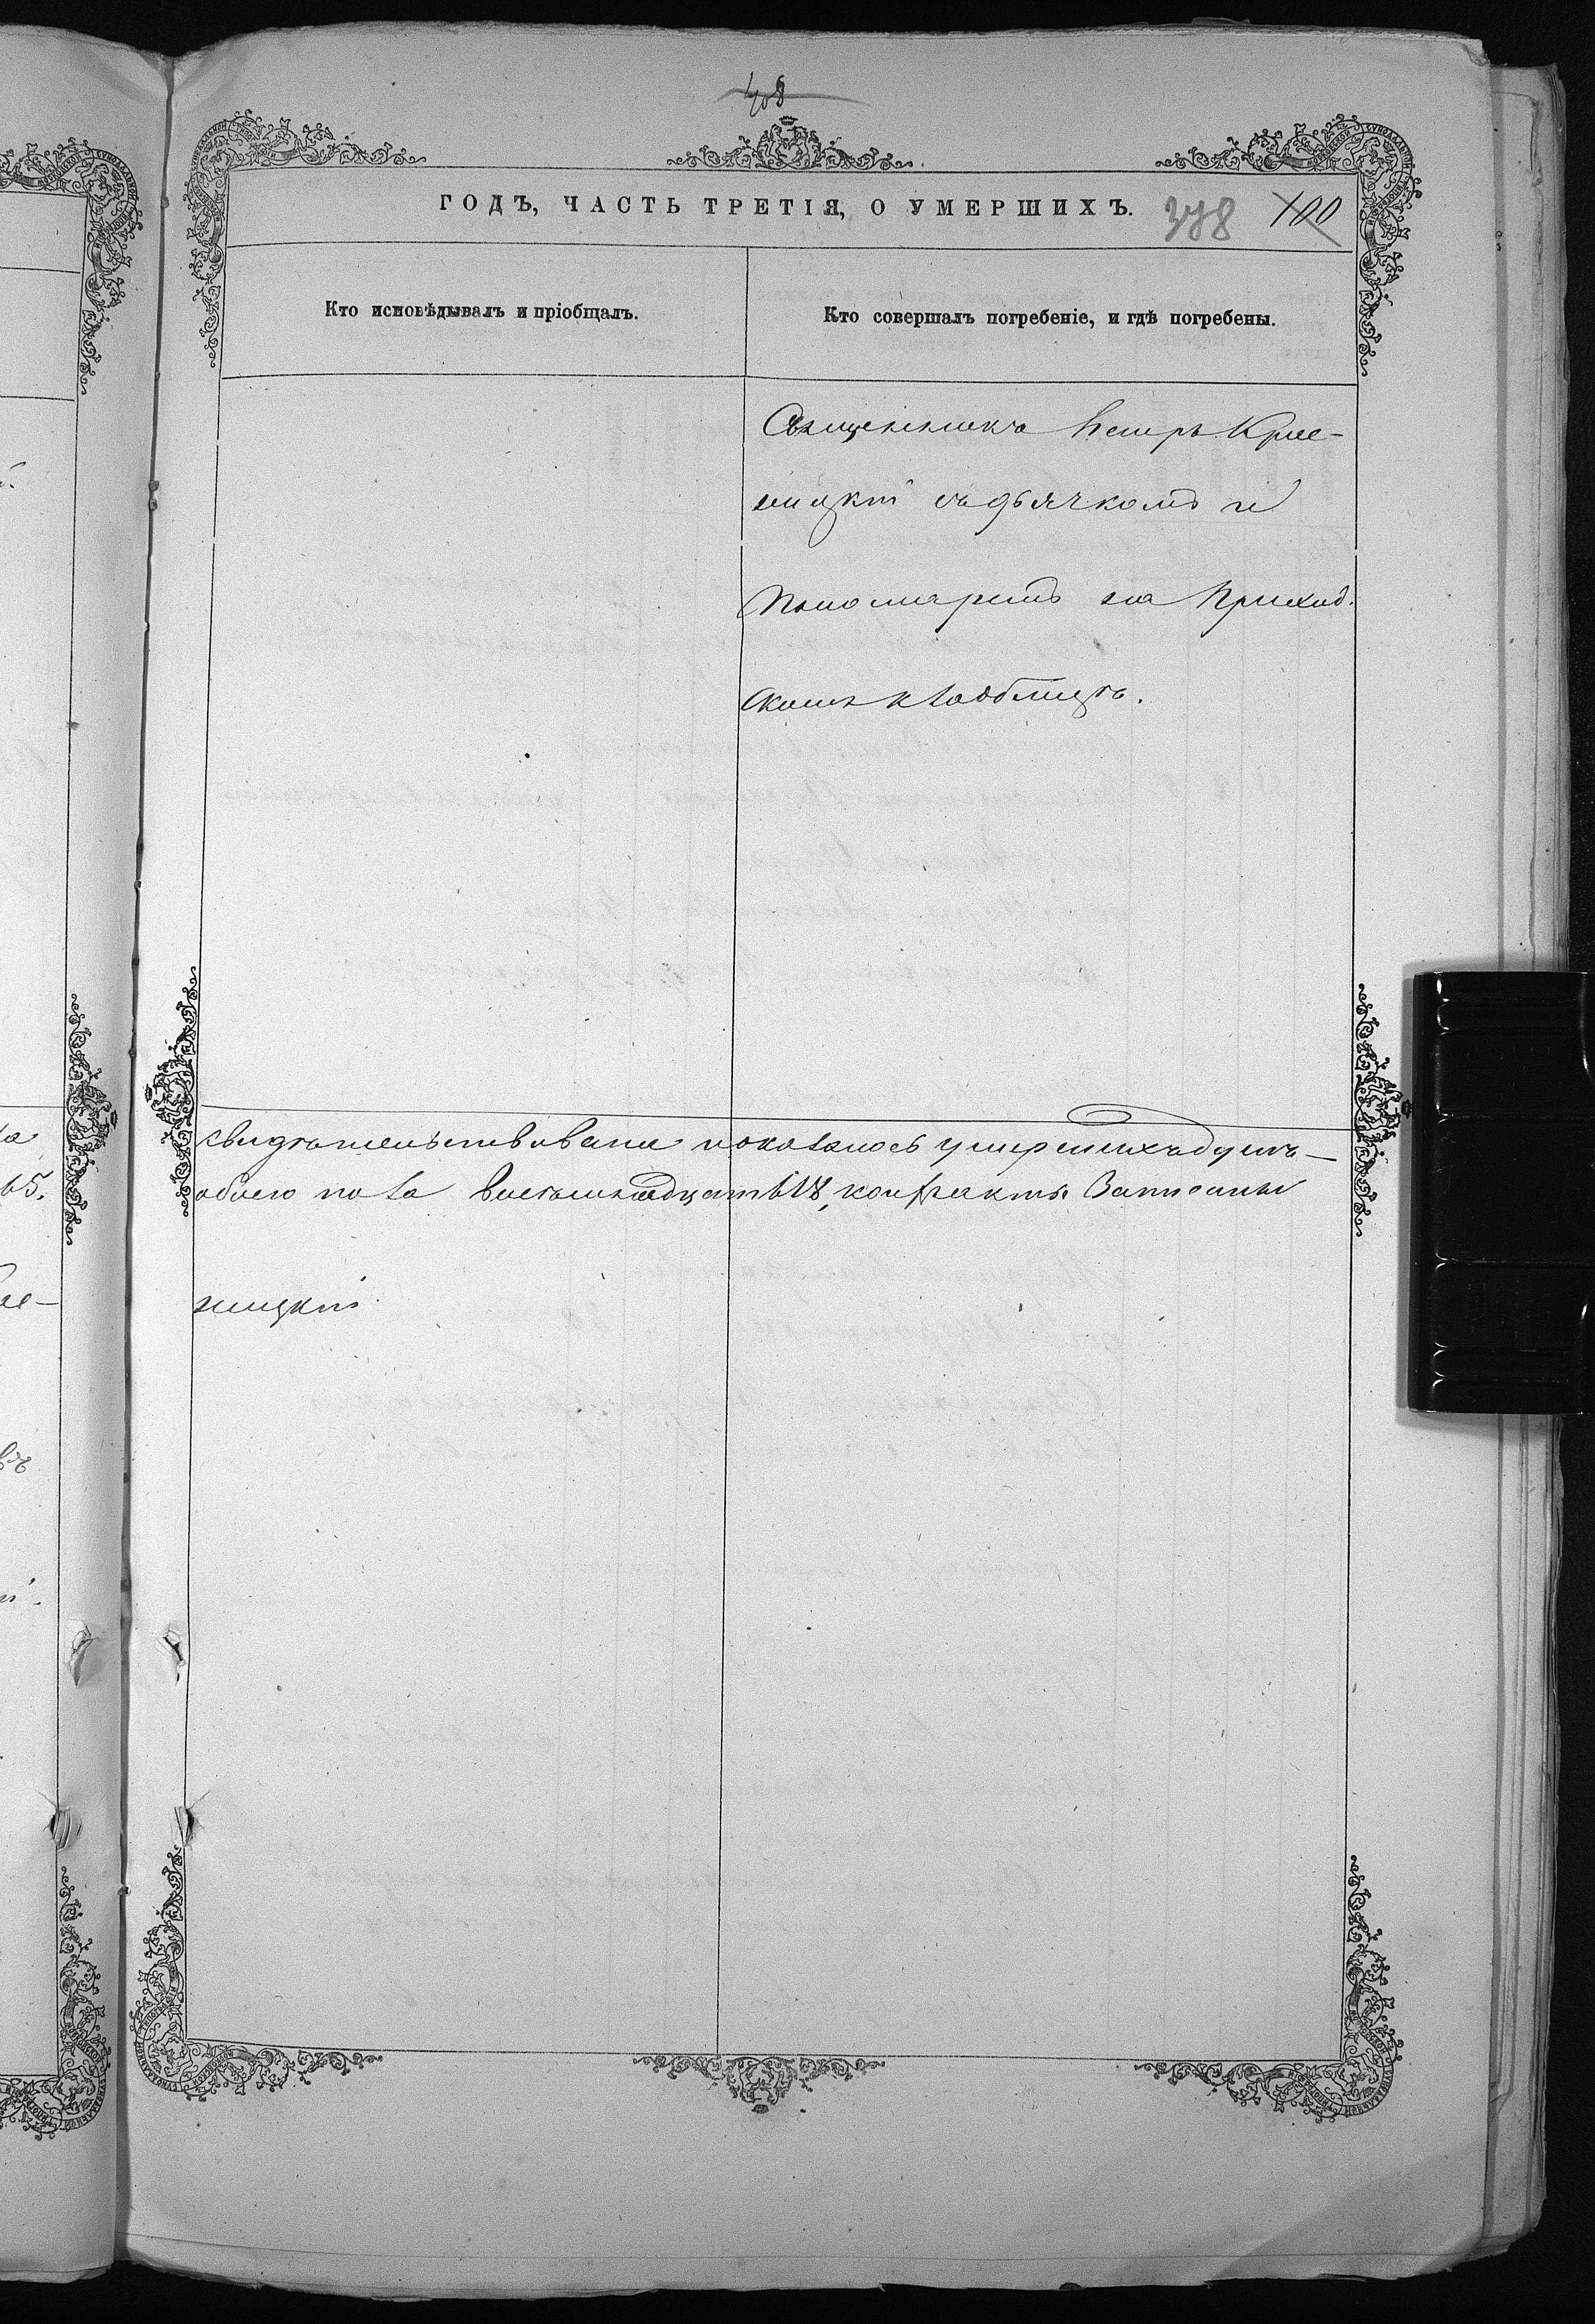 408
ГОДЪ, ЧАСТЬ ТРЕТІЯ, О УМЕРШИХЪ. 378 100
Кто исповѣдывалъ и пріобщалъ.
Кто совершалъ погребеніе, и гдѣ погребены.
Священникъ Петръ Крие-
ницкій съ дьячкомъ и
Пономаремъ на Приход.
скомъ кладбищѣ.
свидѣтельствована показалось умершихъ душъ
обоего пола восемьнадцать 18,
ницкій